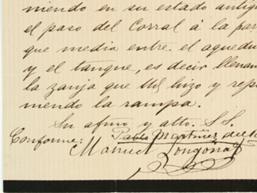 niendo en su estado antig
el paso del Corral á la par
que media entre el aqued
y el tanque, es decir llenan
la zanja que Ud hizo y rep
niendo la rampa.
Su afmo y atto. S.S.
Conforme: Pablo Martinez del
Manuel